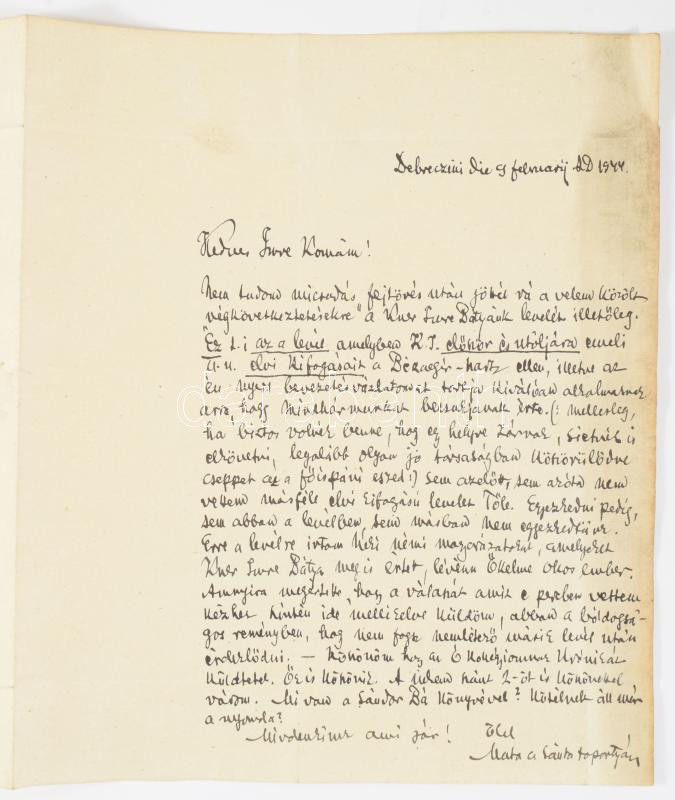 Debreczini die 9 februarij AD 1944.
Kedves Imre Komám!
Nem tudom micsodás fejtörés után jöttél rá a velem közölt
végkövetkeztetésekre" a Kner Imre Bátyánk levelét illetőleg.
Ez t.i az a levél amelyben K.I. először és utóljára emeli
u.n. elvi kifogásait a ellen, illetve az
én nyers bevezetésvázlatomat tartja kiválóan alkalmasnak
arra, hogy mindhármunkat becsukjanak érte. (: mellesleg,
ha biztos volnék benne, hogy egy helyre zárnak, sietnék is
elkövetni, legalább olyan jó társaságban
cseppet az a főispáni eszed:) Sem azelőtt, sem azóta nem
vettem másféle elvi kifogású levelet Tőle. Egyezkedni pedig,
sem abban a levélben, sem másban nem egyezkedtünk.
Erre a levélre írtam Neki némi magyarázatokat, amelyeket
Kner Imre Bátya meg is értett, lévén Őkelme okos ember.
Annyira megértette, hogy a válaszát amit e percben vettem
kézhez szintén ide mellékelve küldöm, abban a boldogsá-
gos reményben, hogy nem fogsz nemlétező másik levél után
érdeklődni. — Köszönöm hogy az Ó Kollégiomnak
küldtetek. Ők is köszönik. A
várom. Mi van a Sándor Bá könyvével? Kötélnek áll már
a nyomda?
Mindenkinek ami jár! Ölel
Mata a